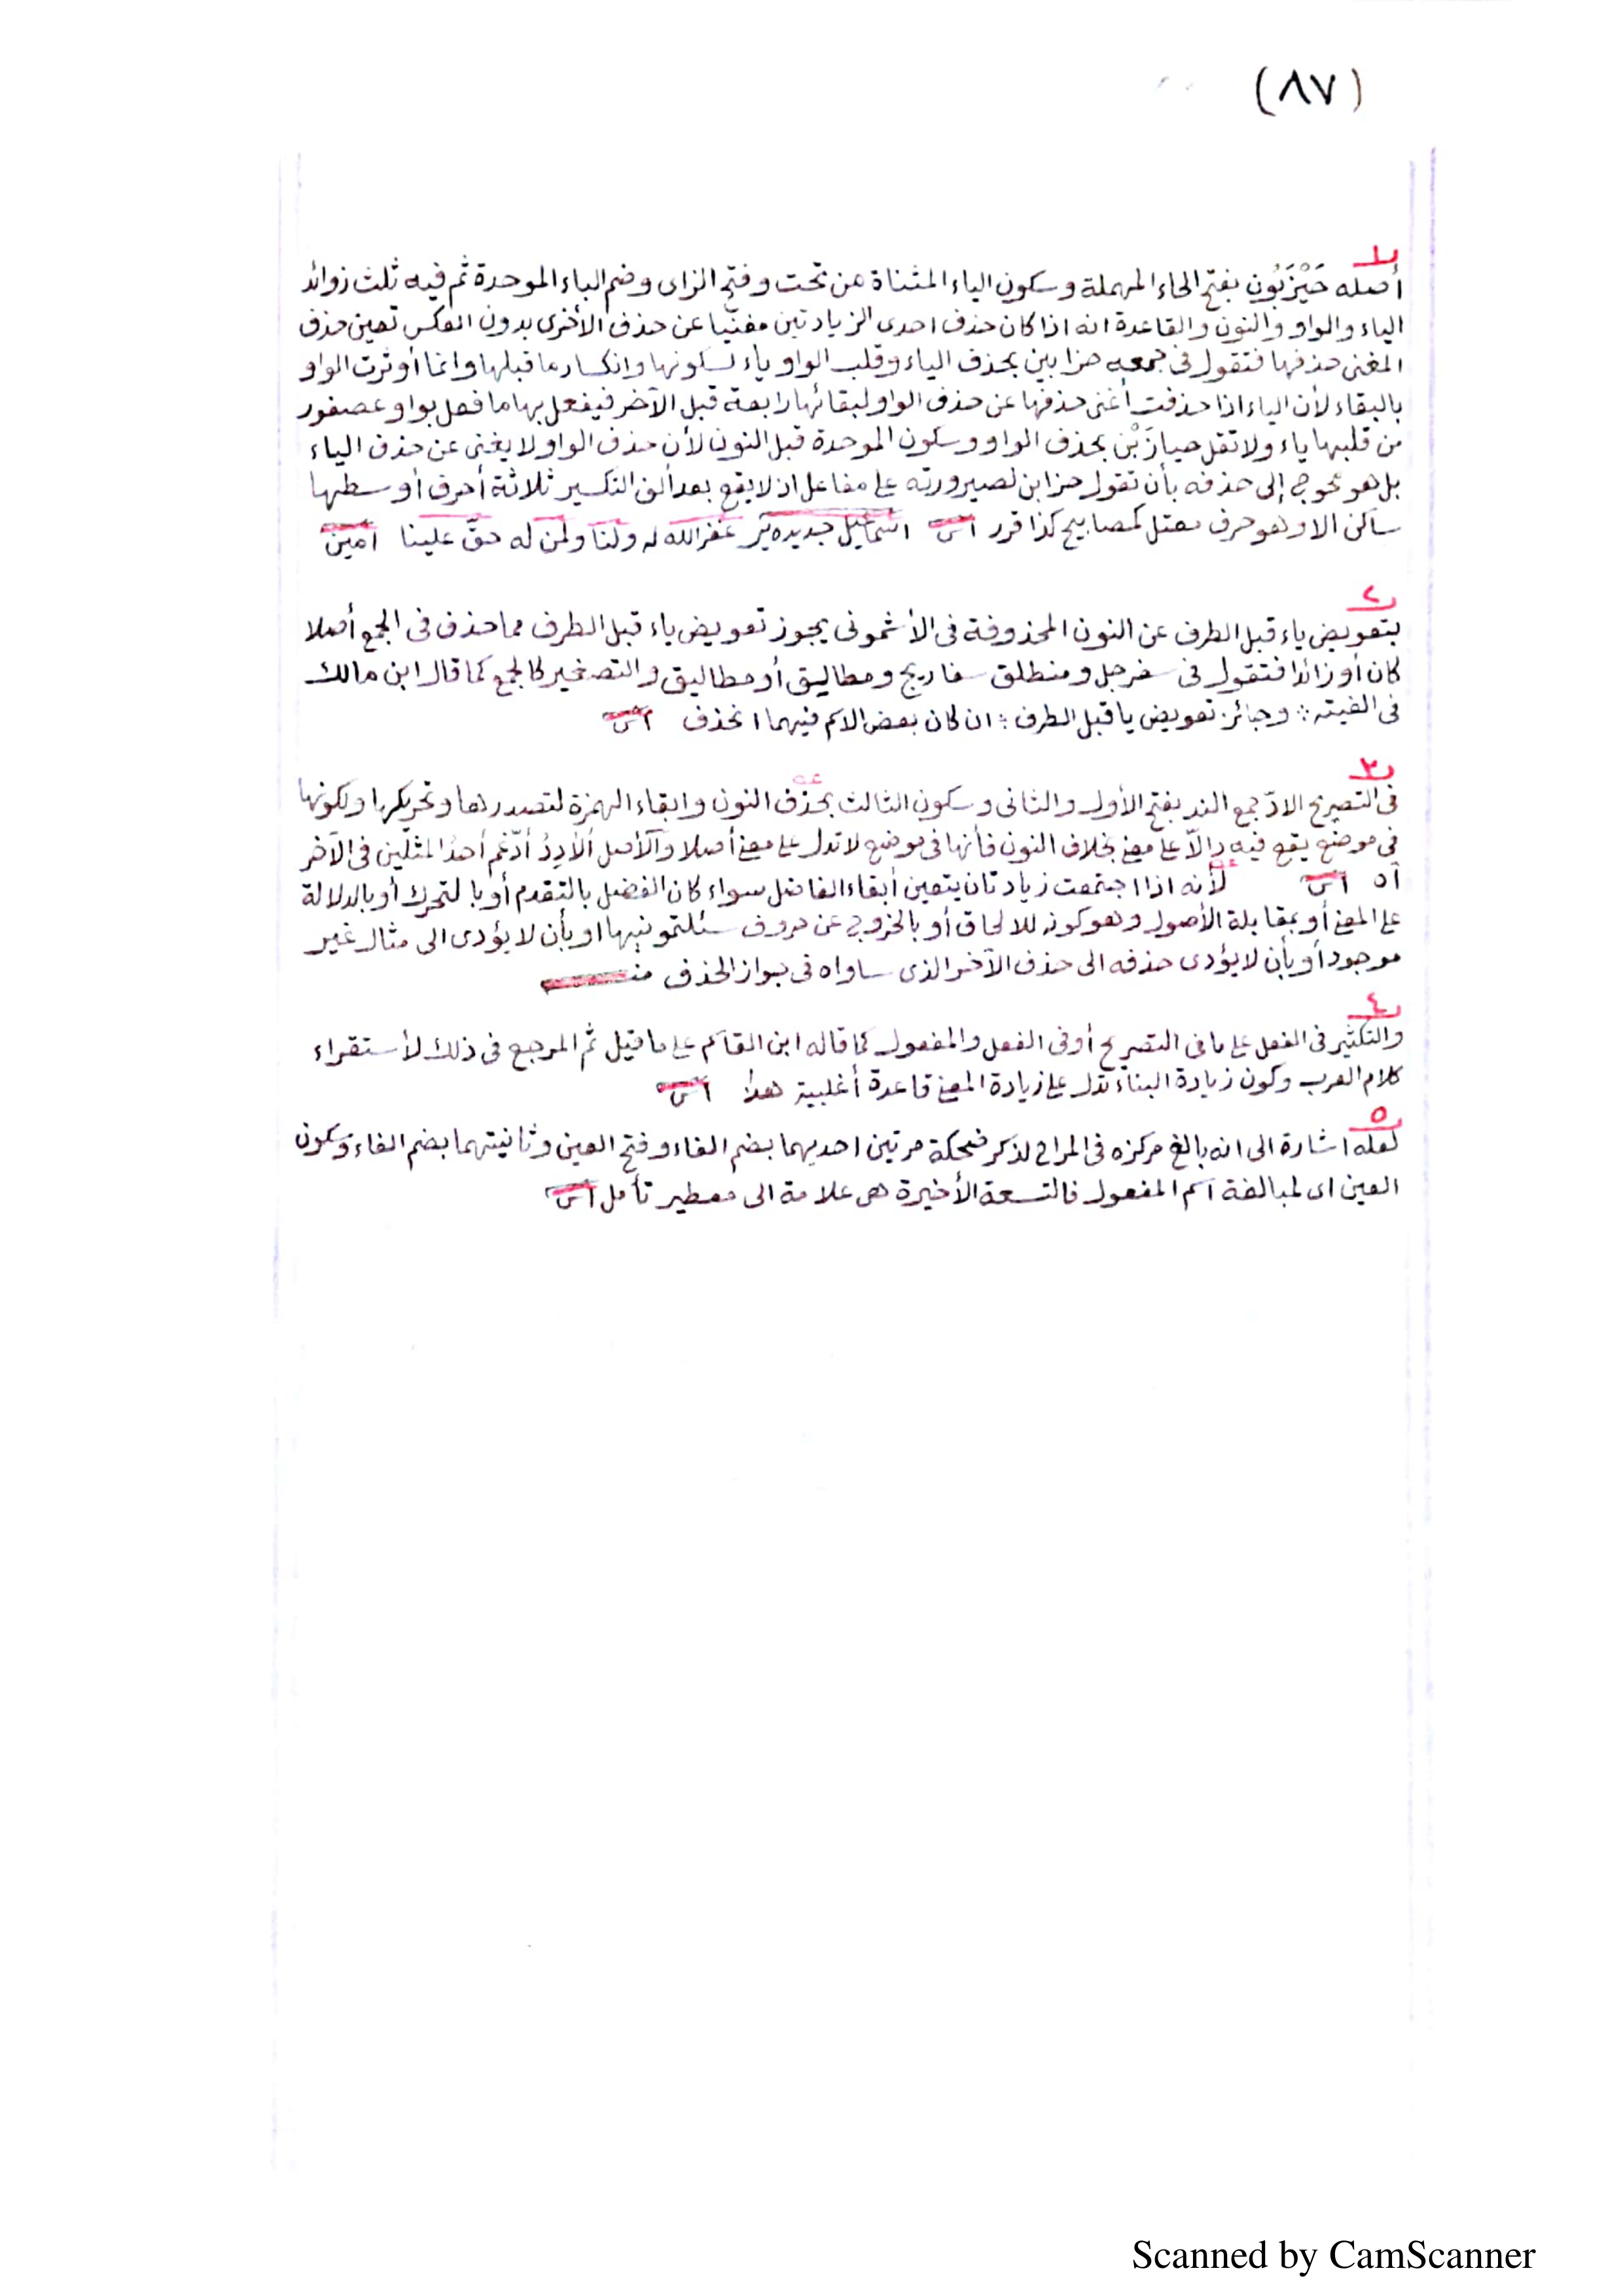 (٨٧)
١
أصله حَيْزَبُون بفتح الحاء المهملة وسكون الياء المثناة من تحت وفتح الزاى وضم الباء الموحدة ثم فيه ثلث زوائد
الياء والواو والنون والقاعدة انه اذا كان حذف احدى الزيادتين مغنيا عن حذف الأخرى بدون العكس تعين حذف
المغنى حذفها فتقول فى جمعه حزابين بحذف الياء وقلب الواو ياء لسكونها وانكسار ما قبلها وانما أوثرت الواو
بالبقاء لأن الياء اذا حذفت أغنى حذفها عن حذف الواو لبقائها رابعة قبل الآخر فيفعل بها ما فعل بواو عصفور
من قلبها ياء ولا تقل حيازَبْن بحذف الواو وسكون الموحدة قبل النون لأن حذف الواو لا يغنى عن حذف الياء
بل هو محوج إلى حذفه بأن تقول حزابن لصيرورته على مفاعل اذ لا يقع بعد ألف التكسير ثلاثة أحرف أوسطها
ساكن الا وهو حرف معتل كمصابيح كذا قرر اس اسماعيل جديده يى غفر الله له ولنا ولمن له حقّ علينا امين
٢
بتعويض ياء قبل الطرف عن النون المحذوفة فى الأشمونى يجوز تعويض ياء قبل الطرف مما حذف فى الجمع أصلا
كان أو زائدا فتقول فى سفرجل ومنطلق سفاريج ومطاليق أو مطاليق والتصغير كالجمع كما قال ابن مالك
فى الفيته ؛ وجائز تعويض يا قبل الطرف ؛ ان كان بعض الاسم فيهما انحذف اس
٣
فى التصريح الادّ جمع الند بفتح الأول والثانى وسكون الثالث بحذف النون وابقاء الهمزة لتصدرها وتحريكها ولكونها
فى موضع يقع فيه دالّا على معنى بخلاف النون فأنها فى موضع لا تدل على معنى أصلا والأصل ألادِدُ أدّغم أحد المثلين فى الآخر
اه اس لأنه اذا اجتمعت زيادتان يتعين أبقاء الفاضل سواء كان الفضل بالتقدم أو بالتحرك أو بالدلالة
على المعنى أو بمقابلة الأصول وهو كونه للالحاق أو بالخروج عن حروف سئلتمونيها او بأن لا يؤدى الى مثال غير
موجود أو بأن لا يؤدى حذفه الى حذف الآخر الذى ساواه فى جواز الحذف منه
٤
والتكثير فى الفعل على ما فى التصريح أو فى الفعل والمفعول كما قاله ابن القاسم على ما قيل ثم المرجع فى ذلك لأستقراء
كلام العرب وكون زيادة البناء تدل على زيادة المعنى قاعدة أغلبية هذا اس
٥
لعله اشارة الى انه بالغ مركزه فى المراح لذكر ضحكة مرتين احديهما بضم الفاء وفتح العين وثانيتهما بضم الفاء وسكون
العين اى لمبالغة اسم المفعول فالتسعة الأخيرة هى علامة الى معطير تأمل اس
Scanned by CamScanner